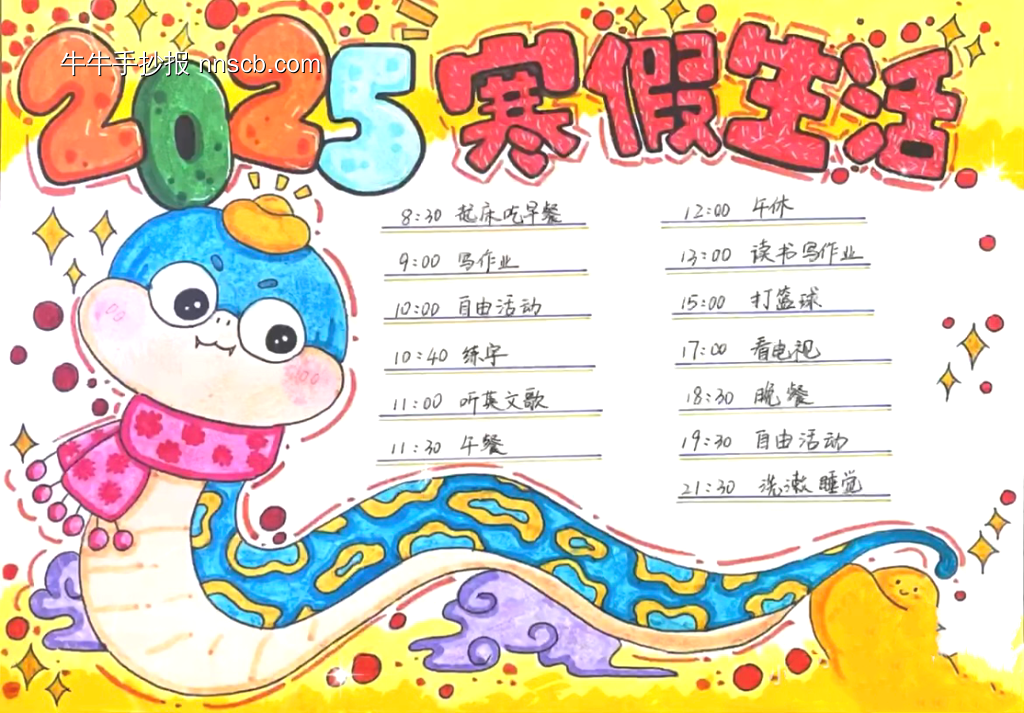 2025 寒假生活
牛牛手抄报 nnscb.com
8:30 起床吃早餐
9:00 写作业
10:00 自由活动
10:40 练字
11:00 听英文歌
11:30 午餐
12:00 午休
13:00 读书写作业
15:00 打篮球
17:00 看电视
18:30 晚餐
19:30 自由活动
21:30 洗漱睡觉